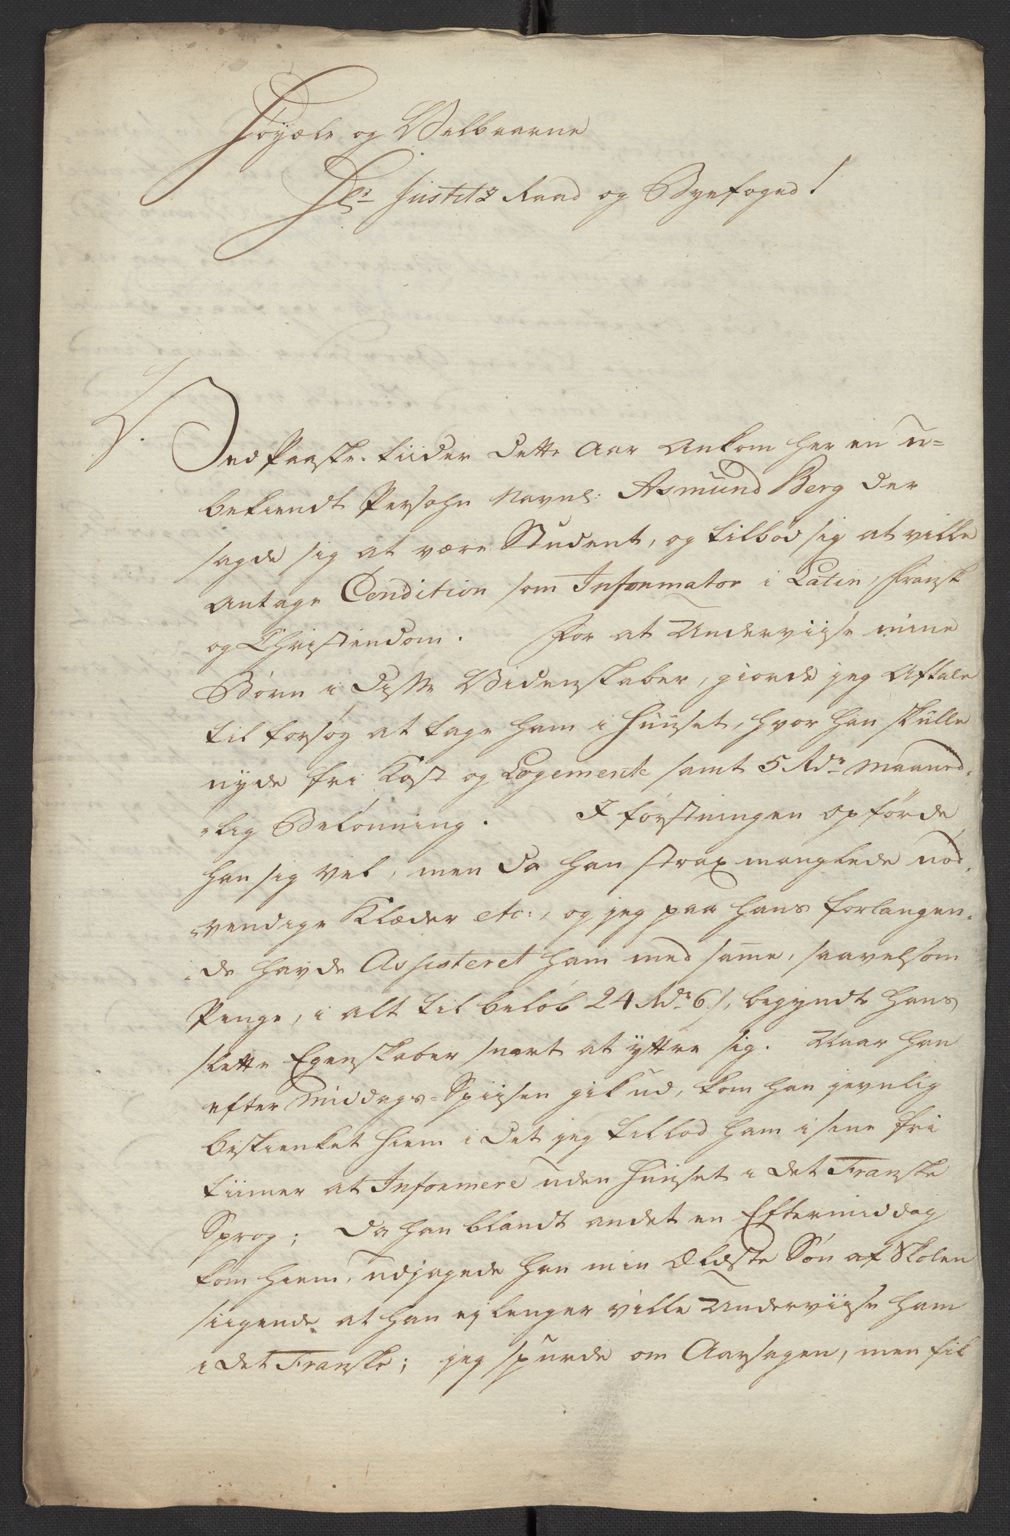 Høyædle og Velbaarne
Hr. Justitz Raad og Byefoged!
V.
Ved Paaske-tiider dette Aar Ankom her en u-
bekiendt Persohn Navnl: Asmund Berg der
sagde sig at være Student, og tilbød sig at ville
Antage Condition som Informator i Latin, Fransk
og Christendom. For at Underviise mine
Børn i disse Videnskaber, giorde jeg Aftale
til forsøg at tage ham i Huuset, hvor han skulle
nyde fri Kost og Logemente samt 5 Rdr maaned-
lig Belønning. I førstningen opførde
han sig vel, men da han strax manglede nød-
vendige Klæder etc:, og jeg paa hans forlangen-
de havde Assisteret ham med samme, saavelsom
Penge, i alt til beløb 24 Rdr 6 s, begyndte hans
slette Egenskaber snart at yttre sig. Naar han
efter Middags-Spiisen gik ud, kom han jevnlig
beskienket hiem i det jeg tillod ham i sine fri
tiimer at Informere uden Huuset i det Franske
Sprog; da han blandt andet en Eftermiddag
kom hiem, udjagede han min Ældste Søn af Skolen
siigende at han ej lenger ville Underviise ham
i det Franske; jeg spurde om Aarsagen, men fik